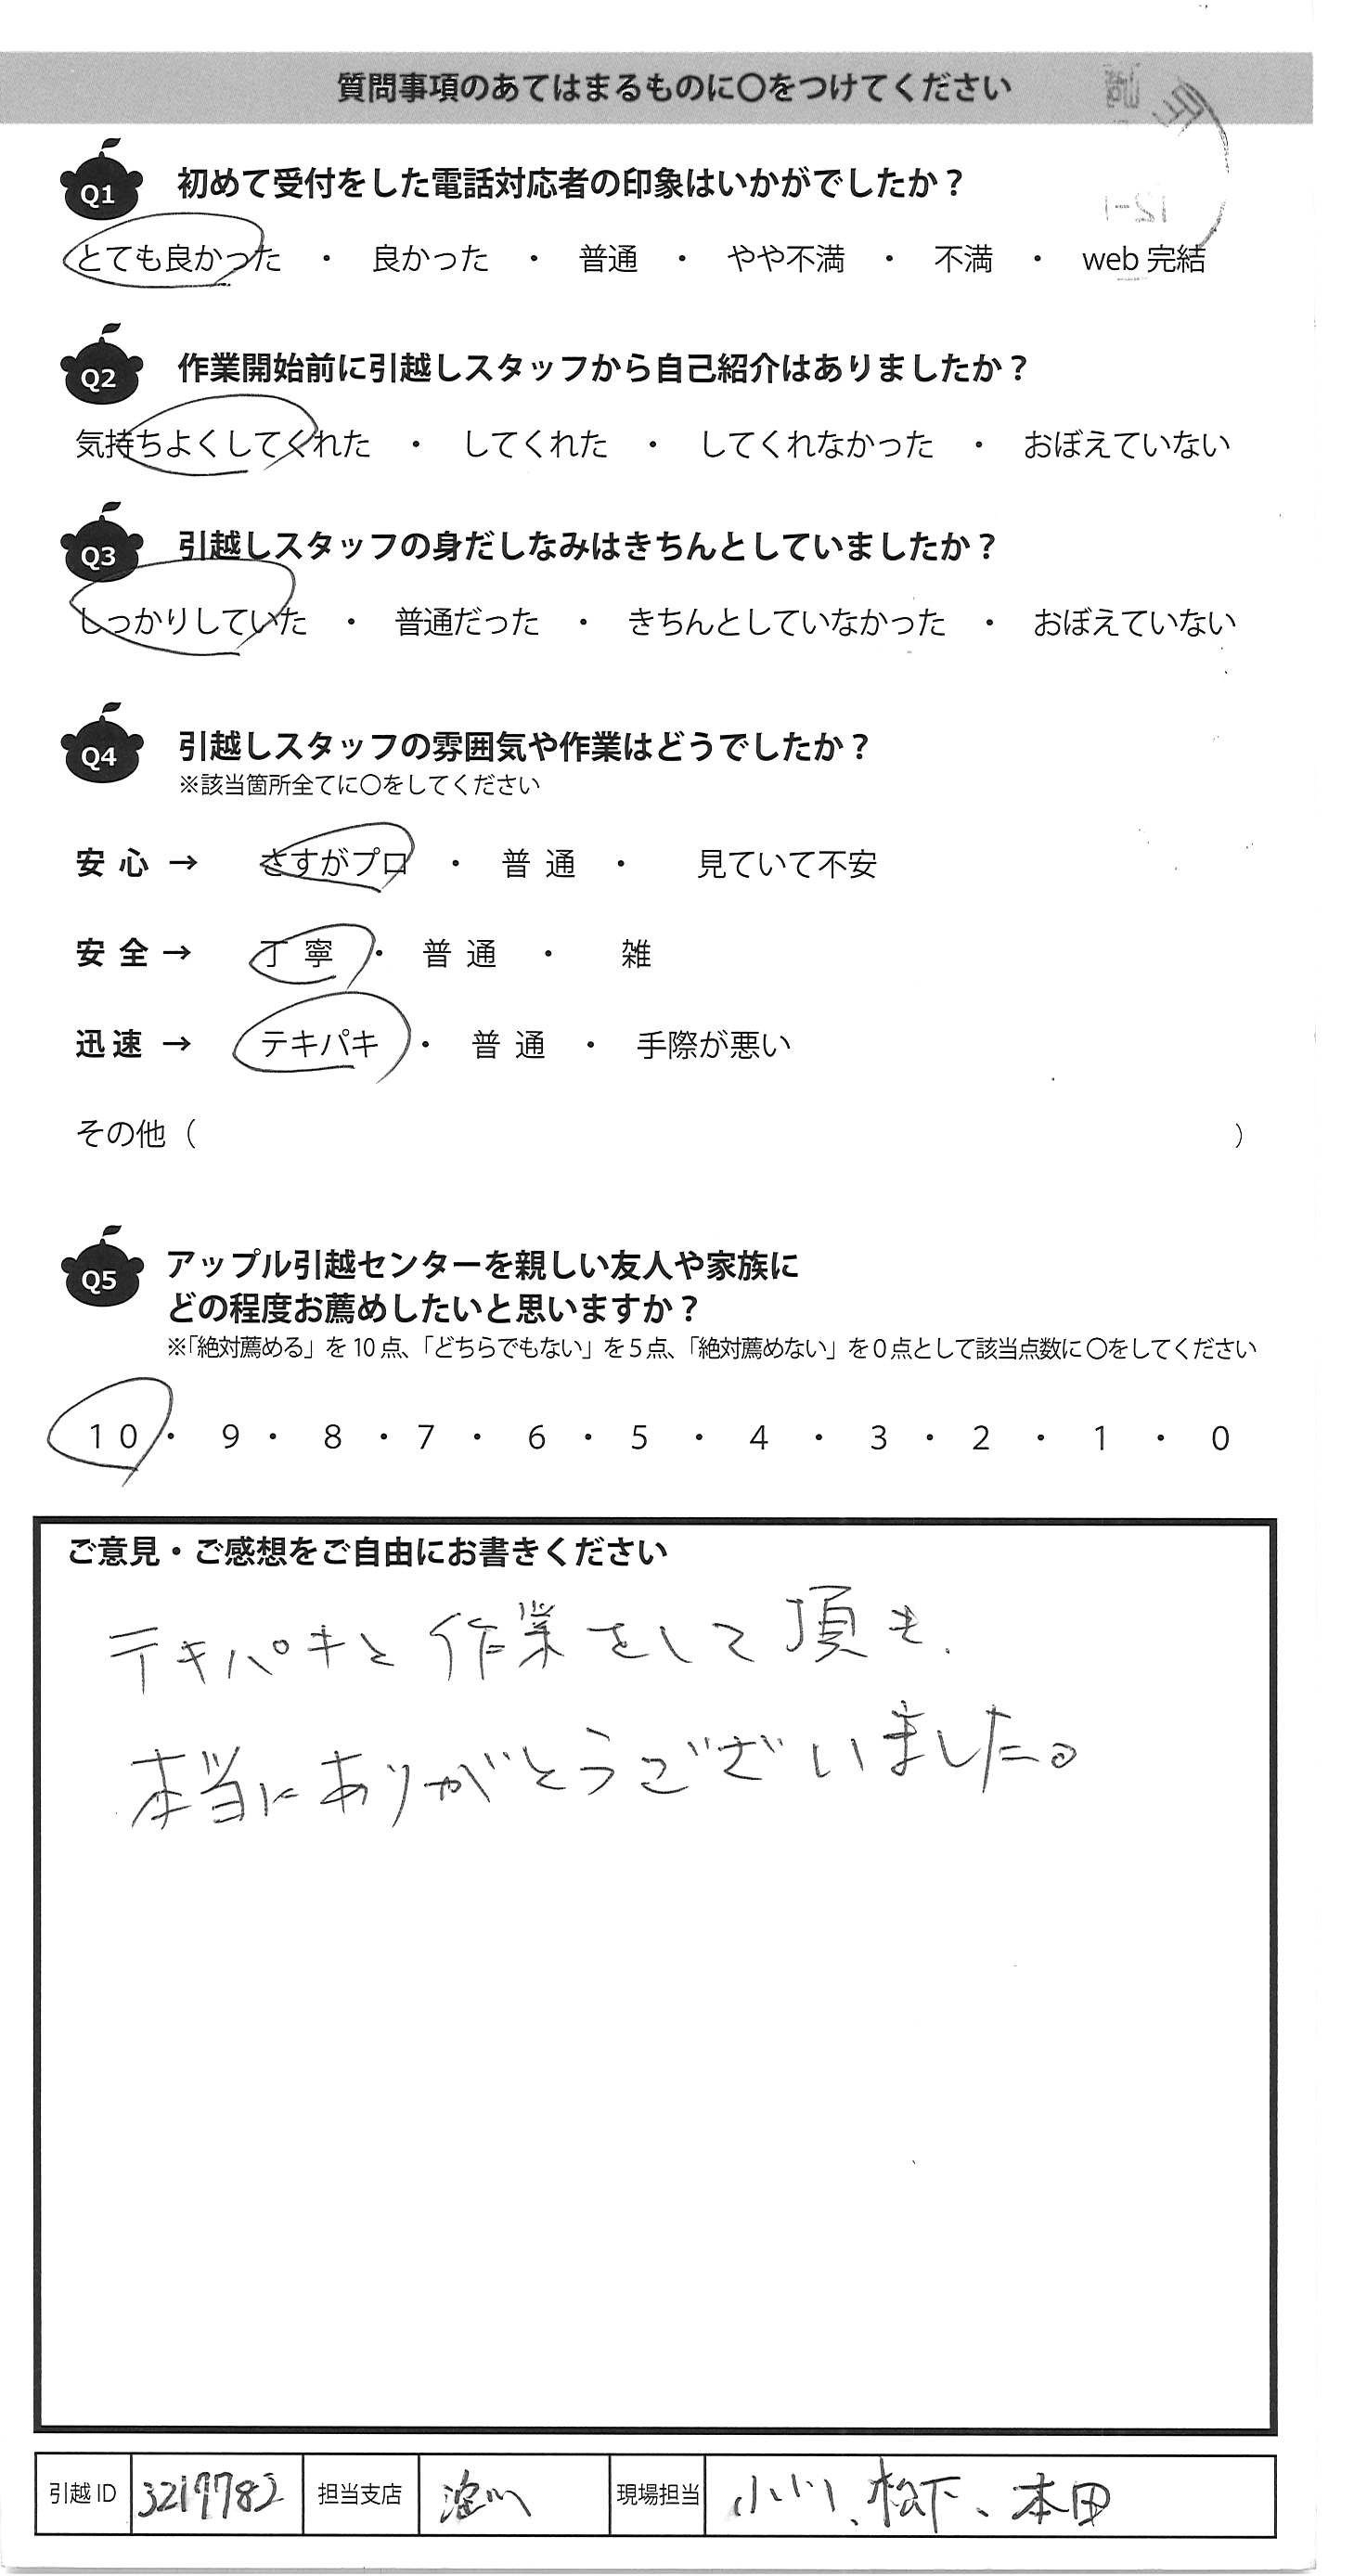 質問事項のあてはまるものに〇をつけてください
Q1 初めて受付をした電話対応者の印象はいかがでしたか？
とても良かった ・ 良かった ・ 普通 ・ やや不満 ・ 不満 ・ web 完結
Q2 作業開始前に引越しスタッフから自己紹介はありましたか？
気持ちよくしてくれた ・ してくれた ・ してくれなかった ・ おぼえていない
Q3 引越しスタッフの身だしなみはきちんとしていましたか？
しっかりしていた ・ 普通だった ・ きちんとしていなかった ・ おぼえていない
Q4 引越しスタッフの雰囲気や作業はどうでしたか？
※該当箇所全てに〇をしてください
安心 → さすがプロ ・ 普通 ・ 見ていて不安
安全 → 丁寧 ・ 普通 ・ 雑
迅速 → テキパキ ・ 普通 ・ 手際が悪い
その他（ ）
Q5 アップル引越センターを親しい友人や家族に
どの程度お薦めしたいと思いますか？
※「絶対薦める」を 10 点、「どちらでもない」を 5 点、「絶対薦めない」を 0 点として該当点数に 〇をしてください
10 ・ 9 ・ 8 ・ 7 ・ 6 ・ 5 ・ 4 ・ 3 ・ 2 ・ 1 ・ 0
ご意見・ご感想をご自由にお書きください
テキパキと作業をして頂き、
本当にありがとうございました。
引越 ID 3219782 担当支店 淀川 現場担当 小川、松下、本田